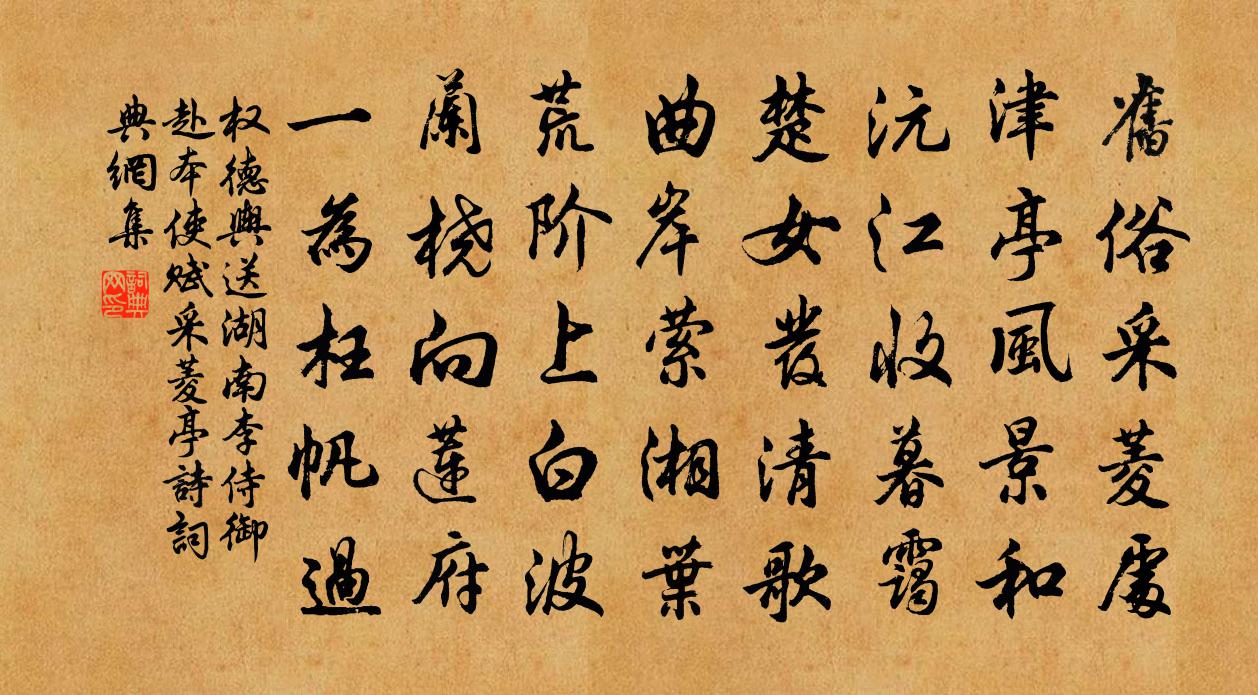 舊俗采菱處
津亭風景和
沅江收暮靄
楚女發清歌
曲岸萦湘葉
荒阶上白波
蘭桡向蓮府
一為枉帆過
权德輿送湖南李侍御
赴本使赋采菱亭詩詞
典網集
詞典
网印